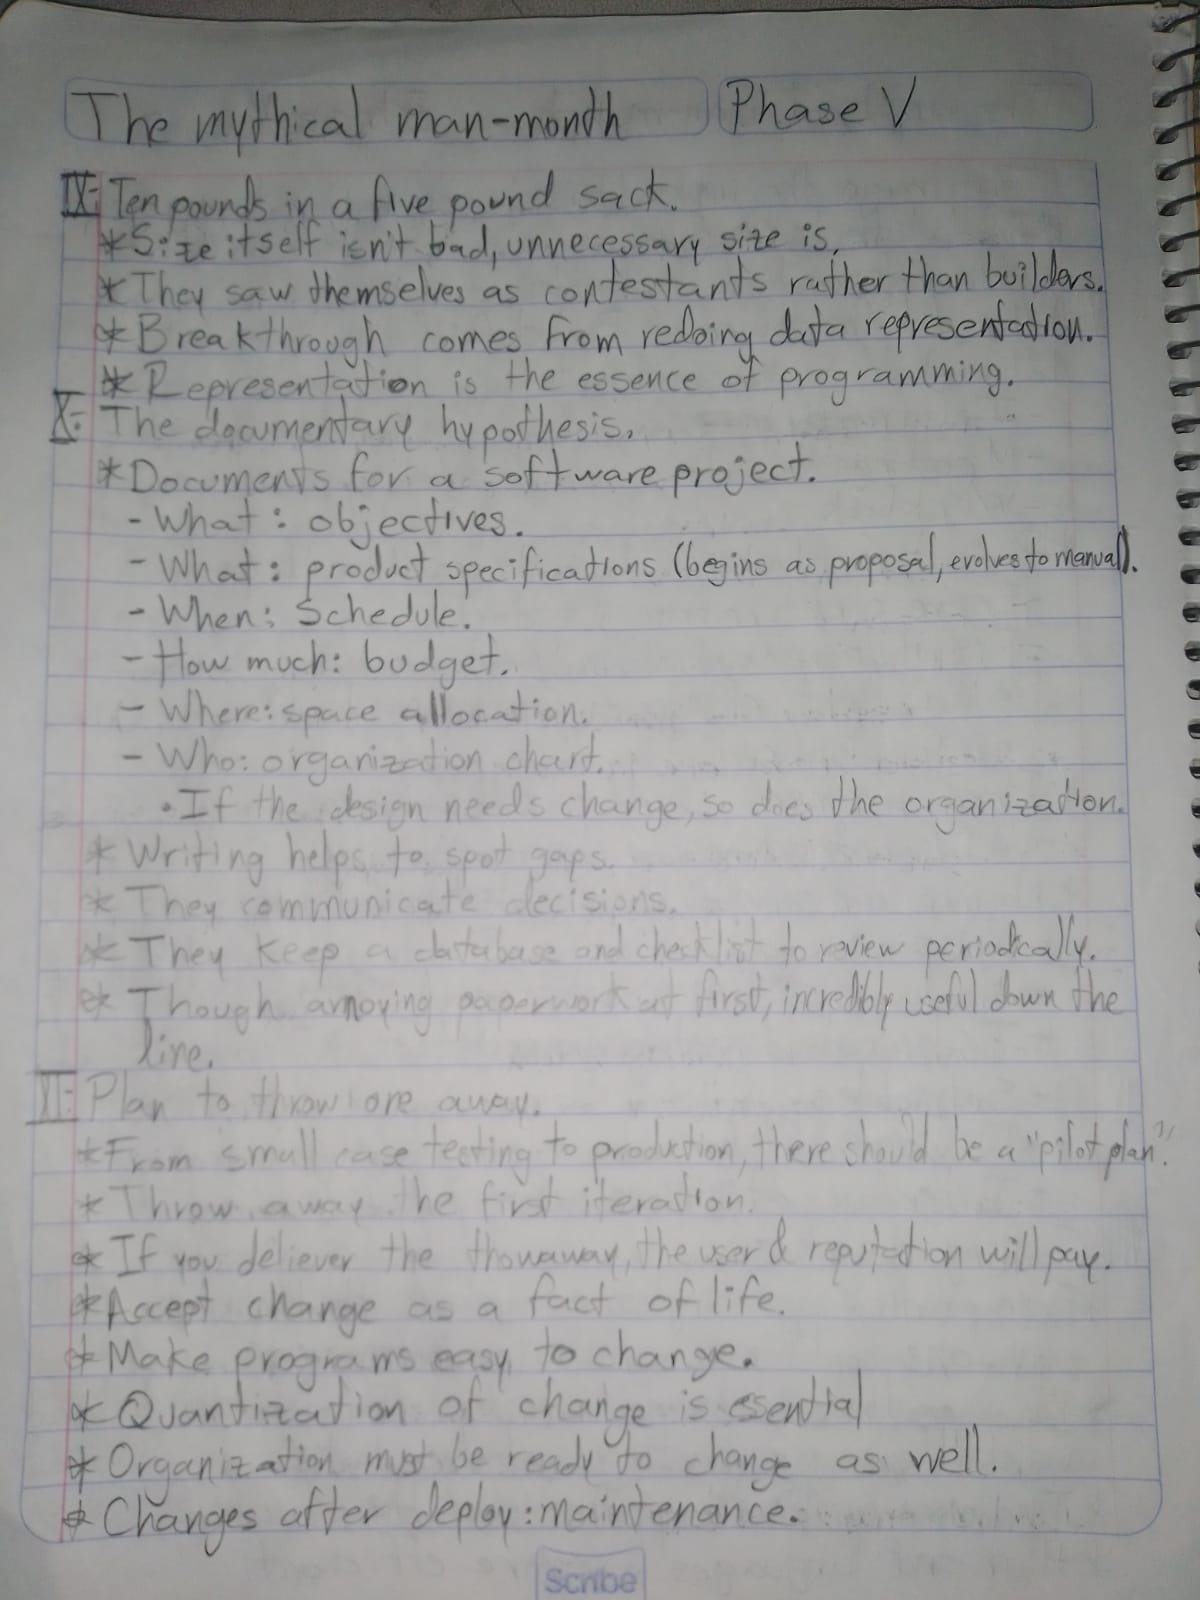 The mythical man-month Phase V
IX: Ten pounds in a five pound sack.
* Size itself isn't bad, unnecessary size is.
* They saw themselves as contestants rather than builders.
* Breakthrough comes from redoing data representation.
* Representation is the essence of programming.
X: The documentary hypothesis.
* Documents for a software project.
- What: objectives.
- What: product specifications (begins as proposal, evolves to manual).
- When: Schedule.
- How much: budget.
- Where: space allocation.
- Who: organization chart.
• If the design needs change, so does the organization.
* Writing helps to spot gaps.
* They communicate decisions.
* They keep a database and checklist to review periodically.
* Though annoying paperwork at first, incredibly useful down the
line.
XI: Plan to throw one away.
* From small case testing to production, there should be a "pilot plan".
* Throw away the first iteration.
* If you deliever the thowaway, the user & reputation will pay.
* Accept change as a fact of life.
* Make programs easy to change.
* Quantization of change is esential
* Organization must be ready to change as well.
* Changes after deploy: maintenance.
Scribe